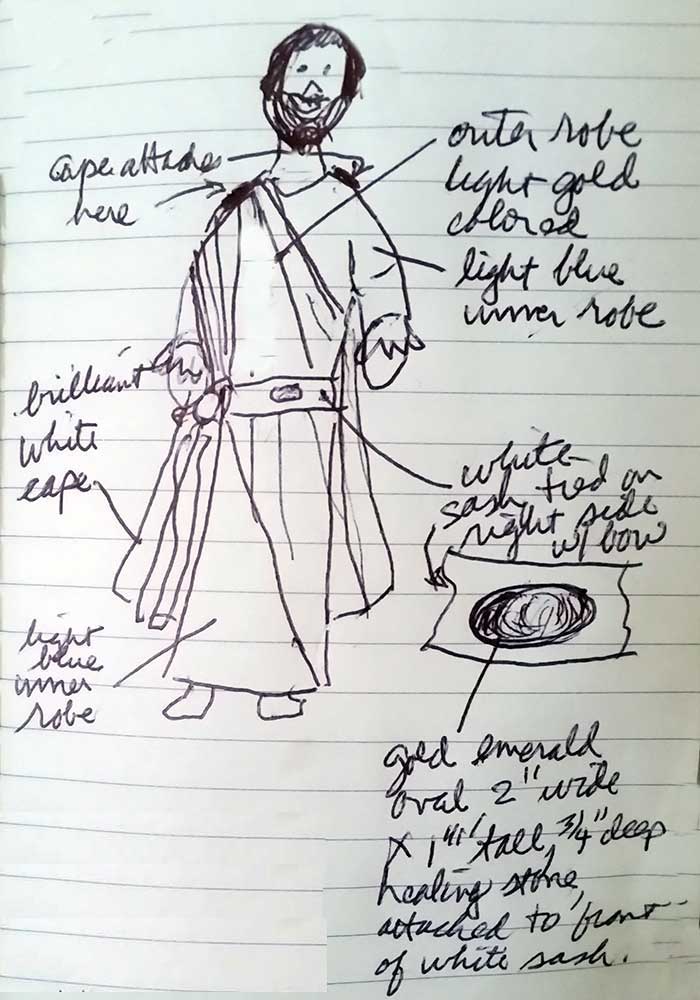 cape attaches
here
outer robe
light gold
colored
light blue
inner robe
brilliant
white
cape
white
sash tied on
right side
w/ bow
light
blue
inner
robe
gold emerald
oval 2" wide
x 1" tall, 3/4" deep
healing stone,
attached to front
of white sash.